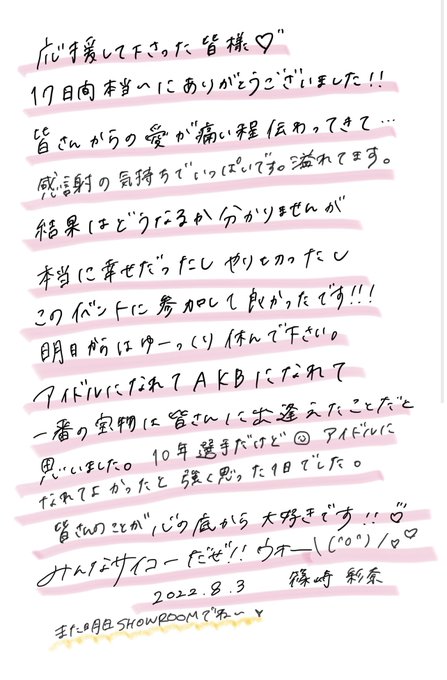 応援して下さった皆様♡
17日間本当〜にありがとうございました!!
皆さんからの愛が痛い程伝わってきて…
感謝の気持ちでいっぱいです。溢れてます。
結果はどうなるか分かりませんが
本当に幸せだったし やりセカったし
このイベントに参加して良かったです!!!
明日からはゆーっくり休んで下さい。
アイドルになれてAKBになれて
一番の宝物は皆さんに出逢えたことだと
思いました。10年選手だけど☺アイドルに
なれてよかったと強く思った1日でした。
皆さんのことが心の底から大好きです!!♡
みんなサイコーだぜ!! ウォー\(^o^)/♡♡
2022.8.3 篠崎 彩奈
また明日SHOWROOMでね〜♥